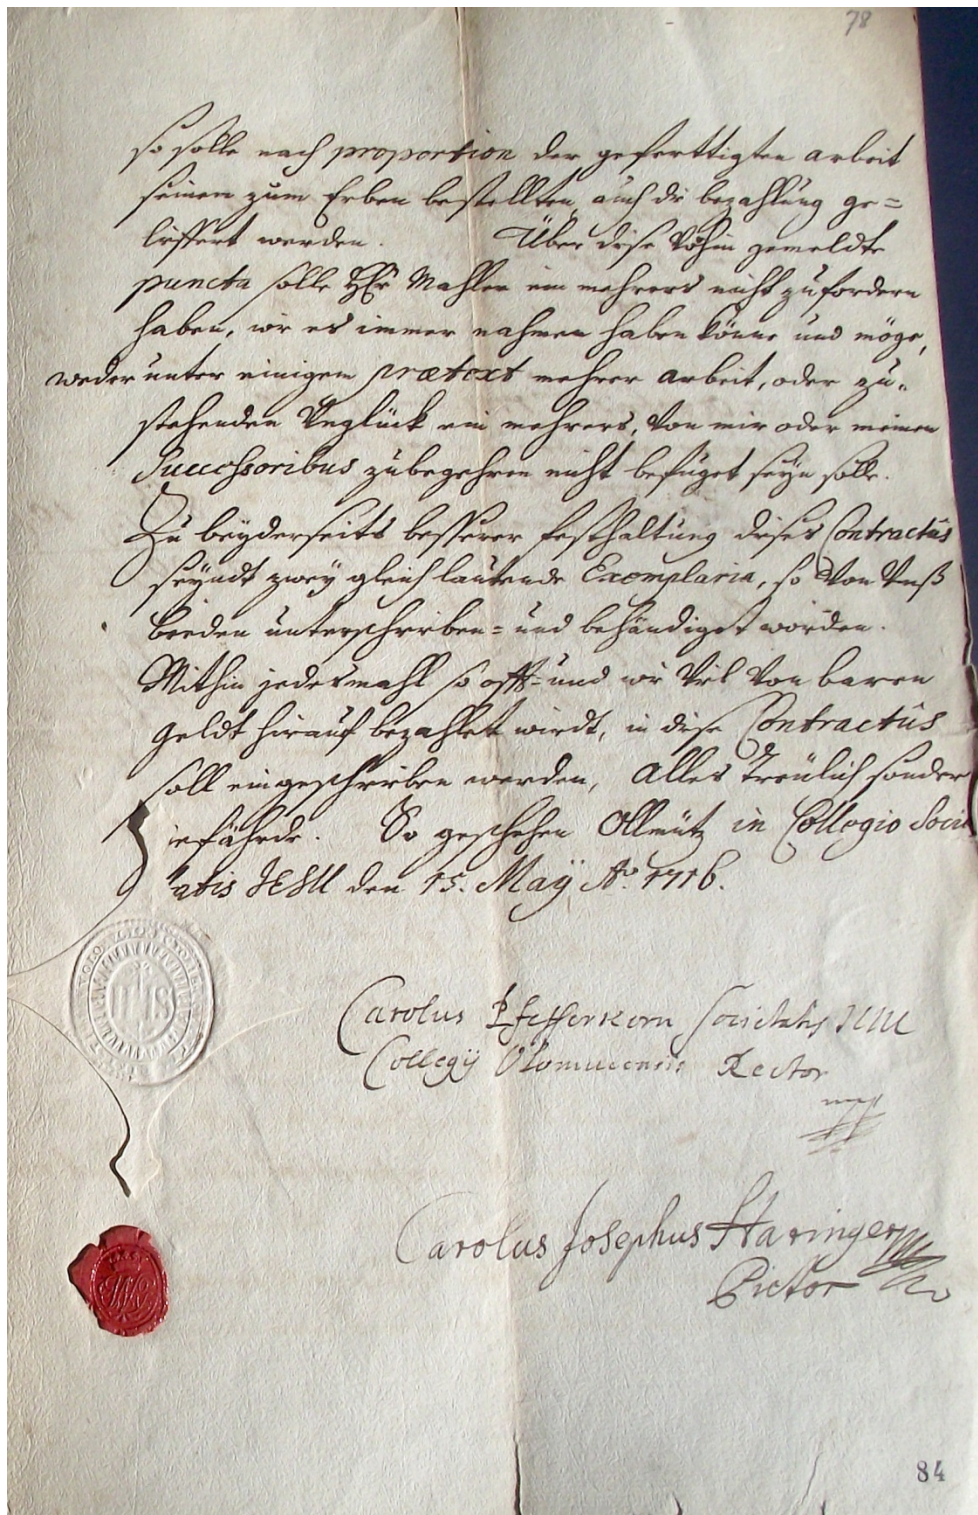 78
so solle nach proportion der geferttigten arbeit
seinen zum Erben bestellten auch die bezahlung ge=
lieffert werden. Über diese Vohin gemeldte
puncta solle Hr Mahler ein mehrers nicht zufordern
haben, wie es immer nahmen haben könne und möge,
weder unter einigem prætext mehrer arbeit, oder zu=
stehenden Unglück ein mehrers, Von mir oder meinen
Successoribus zubegehren nicht befuget seyn solle.
Zu beyderseits besserer festhaltung dieses Contractûs
seyndt zwey gleich lautende Exemplaria, so Von Unß
beeden unterschrieben= und behändiget worden.
Mithin jedesmahl so offt= und wie Viel Von baren
geldt hierauf bezahlet wirdt, in diese Contractûs
soll eingeschrieben werden, Alles Treülich sonder
gefährde. So geschehen Ollmütz in Collegio Socie
tatis JESU den 15. Maÿ Ao 1716.
IHS
Carolus Pfefferkorn Societatis JESU
Collegÿ Olomucensis Rector
mp
Carolus Josephus Haringer
Pictor
84